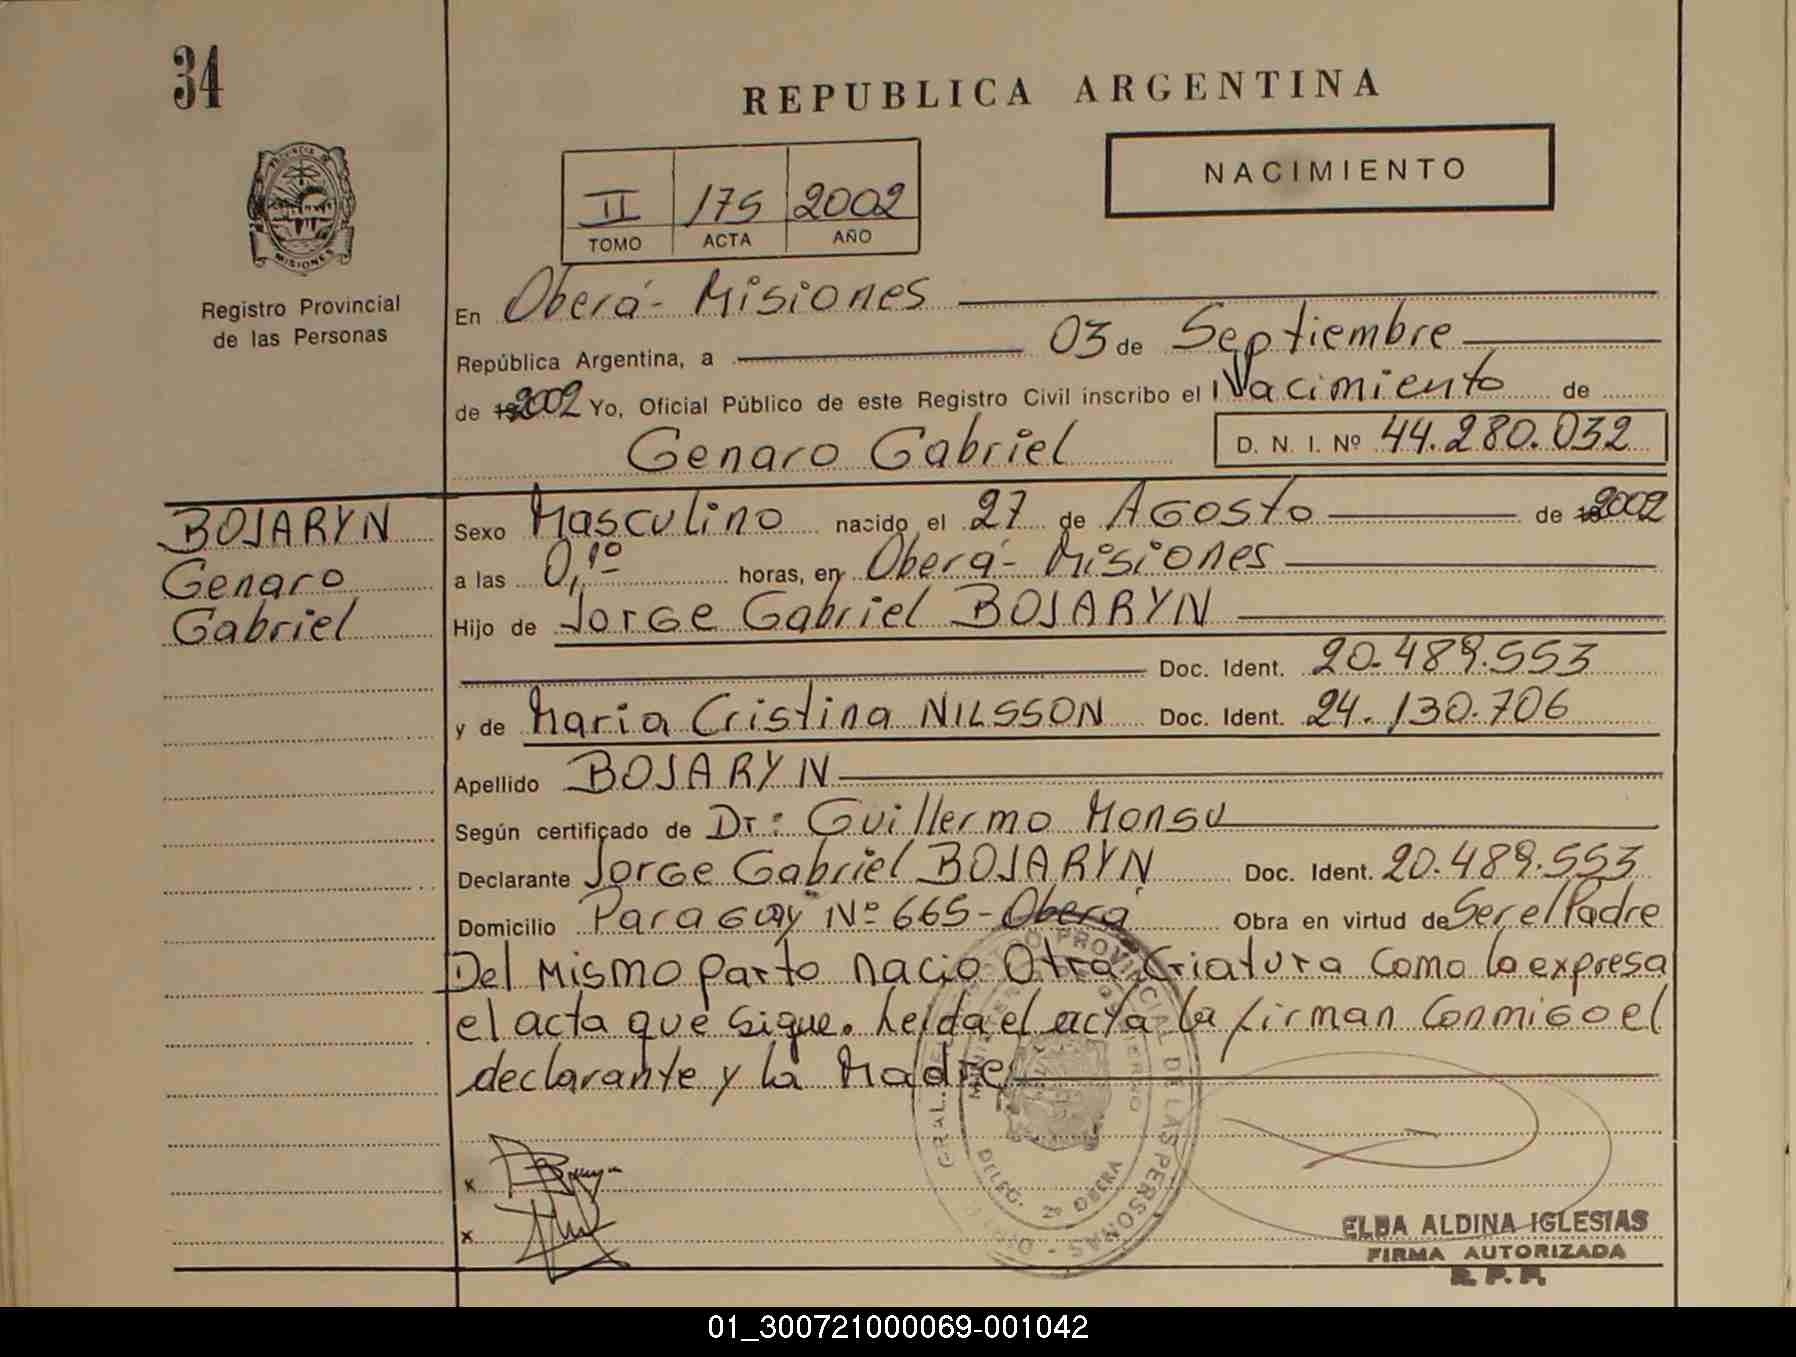 34
REPUBLICA ARGENTINA
NACIMIENTO
II 175 2002
TOMO ACTA AÑO
PROVINCIA DE MISIONES
Registro Provincial
de las Personas
En Oberá - Misiones
República Argentina, a 03 de Septiembre
de 2002 Yo, Oficial Público de este Registro Civil inscribo el Nacimiento de
Genaro Gabriel D. N. I. Nº 44.280.032
BOJARYN
Genaro
Gabriel
Sexo Masculino nacido el 27 de Agosto de 2002
a las 0,10 horas, en Oberá - Misiones
Hijo de Jorge Gabriel BOJARYN
Doc. Ident. 20.489.553
y de Maria Cristina NILSSON Doc. Ident. 24.130.706
Apellido BOJARYN
Según certificado de Dr: Guillermo Monsu
Declarante Jorge Gabriel BOJARYN Doc. Ident. 20.489.553
Domicilio Paraguay Nº 665 - Oberá Obra en virtud de Ser el Padre
Del Mismo parto nacio Otra Criatura Como lo expresa
el acta que sigue. Leida el acta la firman Conmigo el
declarante y la Madre
x
x
PROVINCIAL DE LAS PERSONAS
DELEG. 2º OBERA
ELBA ALDINA IGLESIAS
FIRMA AUTORIZADA
R. P. P.
01_300721000069-001042